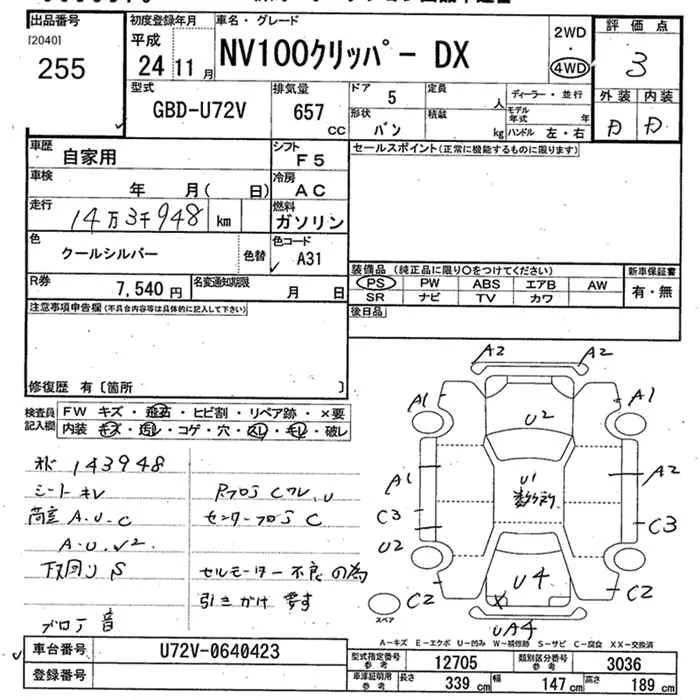 出品番号
[2040]
255
初度登録年月
平成
24 11月
車名・グレード
NV100クリッパー DX
2WD
・
4WD
評価点
3
外装 内装
D D
型式
GBD-U72V
排気量
657
CC
ドア 5
定員 人
ディーラー・並行
形状 バン
積載 kg
モデル年式 年
ハンドル 左・右
車歴
自家用
シフト
F5
セールスポイント(正常に機能するものに限ります)
車検
年 月( 日)
冷房
AC
走行
14万3千948 km
燃料
ガソリン
色
クールシルバー
色替
色コード
A31
装備品 (純正品に限り○をつけてください)
新車保証書
PS PW ABS エアB AW
有・無
SR ナビ TV カワ
R券
7,540円
名変通知期限
月 日
後日品
注意事項申告欄(不具合内容等は具体的に記入して下さい)
修復歴 有〔箇所 〕
検査員記入欄
FW キズ・飛石・ヒビ割・リペア跡・×要
内装 キズ・汚レ・コゲ・穴・スレ・キレ・破レ
143948
シートキレ
荷室 A.U.C
A.U.√2.
下回り S
フロア 音
C ワレ.U
センターフロア C
セルモーター不良の為
引きかけ要す
A2 A2
A1 A1
U2
A1 U1 A2
C3 C3
U2
U4
C2 C2
X
スペア
UA4
A-キズ E-エクボ U-凹み W-補修跡 S-サビ C-腐食 XX-交換済
車台番号
U72V-0640423
登録番号
型式指定番号 参考
12705
類別区分番号 参考
3036
車庫証明用 参考
長さ 339 cm
幅 147 cm
高さ 189 cm